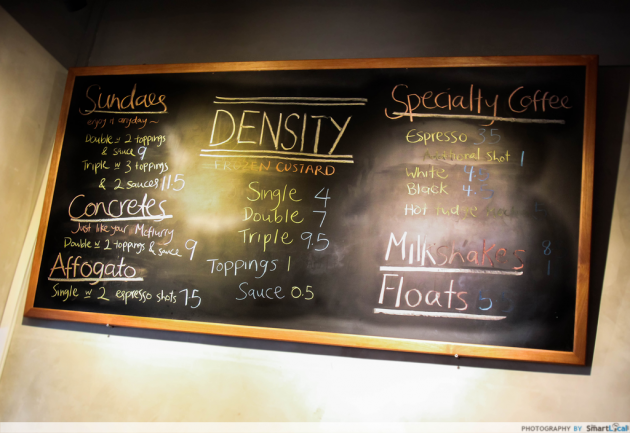 Sundaes
enjoy'n anyday~
Double w 2 toppings
& sauce 9
Triple w 3 toppings
& 2 sauces 11.5
Concretes
Just like your Mcflurry
Double w 2 toppings & sauce 9
Affogato
Single w 2 espresso shots 7.5
DENSITY
FROZEN CUSTARD
Single 4
Double 7
Triple 9.5
Toppings 1
Sauce 0.5
Specialty Coffee
Espresso 3.5
Additional shot 1
White 4.5
Black 4.5
Hot
Milkshakes 8
1
Floats
PHOTOGRAPHY BY SmartLocal